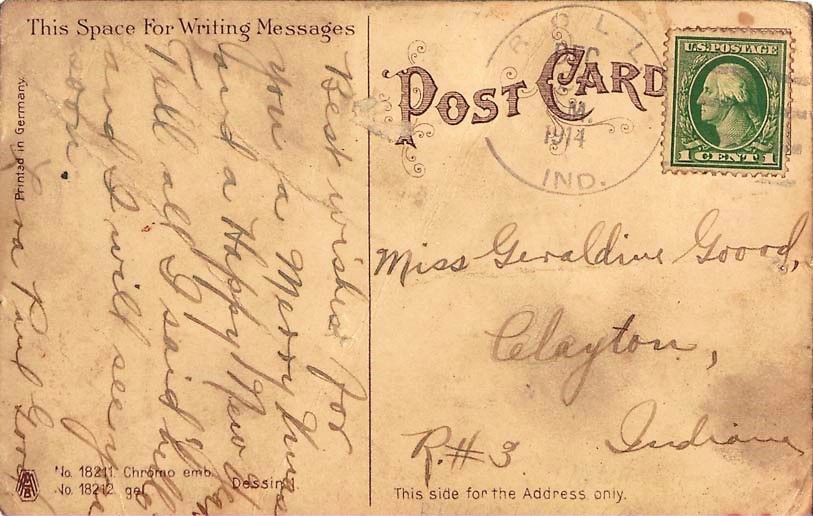 This Space For Writing Messages
POST CARD
ROLL
DEC
M.
1914
IND.
U.S. POSTAGE
1 CENT 1
Printed in Germany.
Best wishes for
you a Merry Xmas
and a Happy New Year
Tell all I said hello
and I will see you
soon.
Paul
Miss Geraldine Goood,
Clayton,
Indiana
R.#3
No. 18211. Chromo emb.
No. 18212. gel.
Dessin 1.
This side for the Address only.